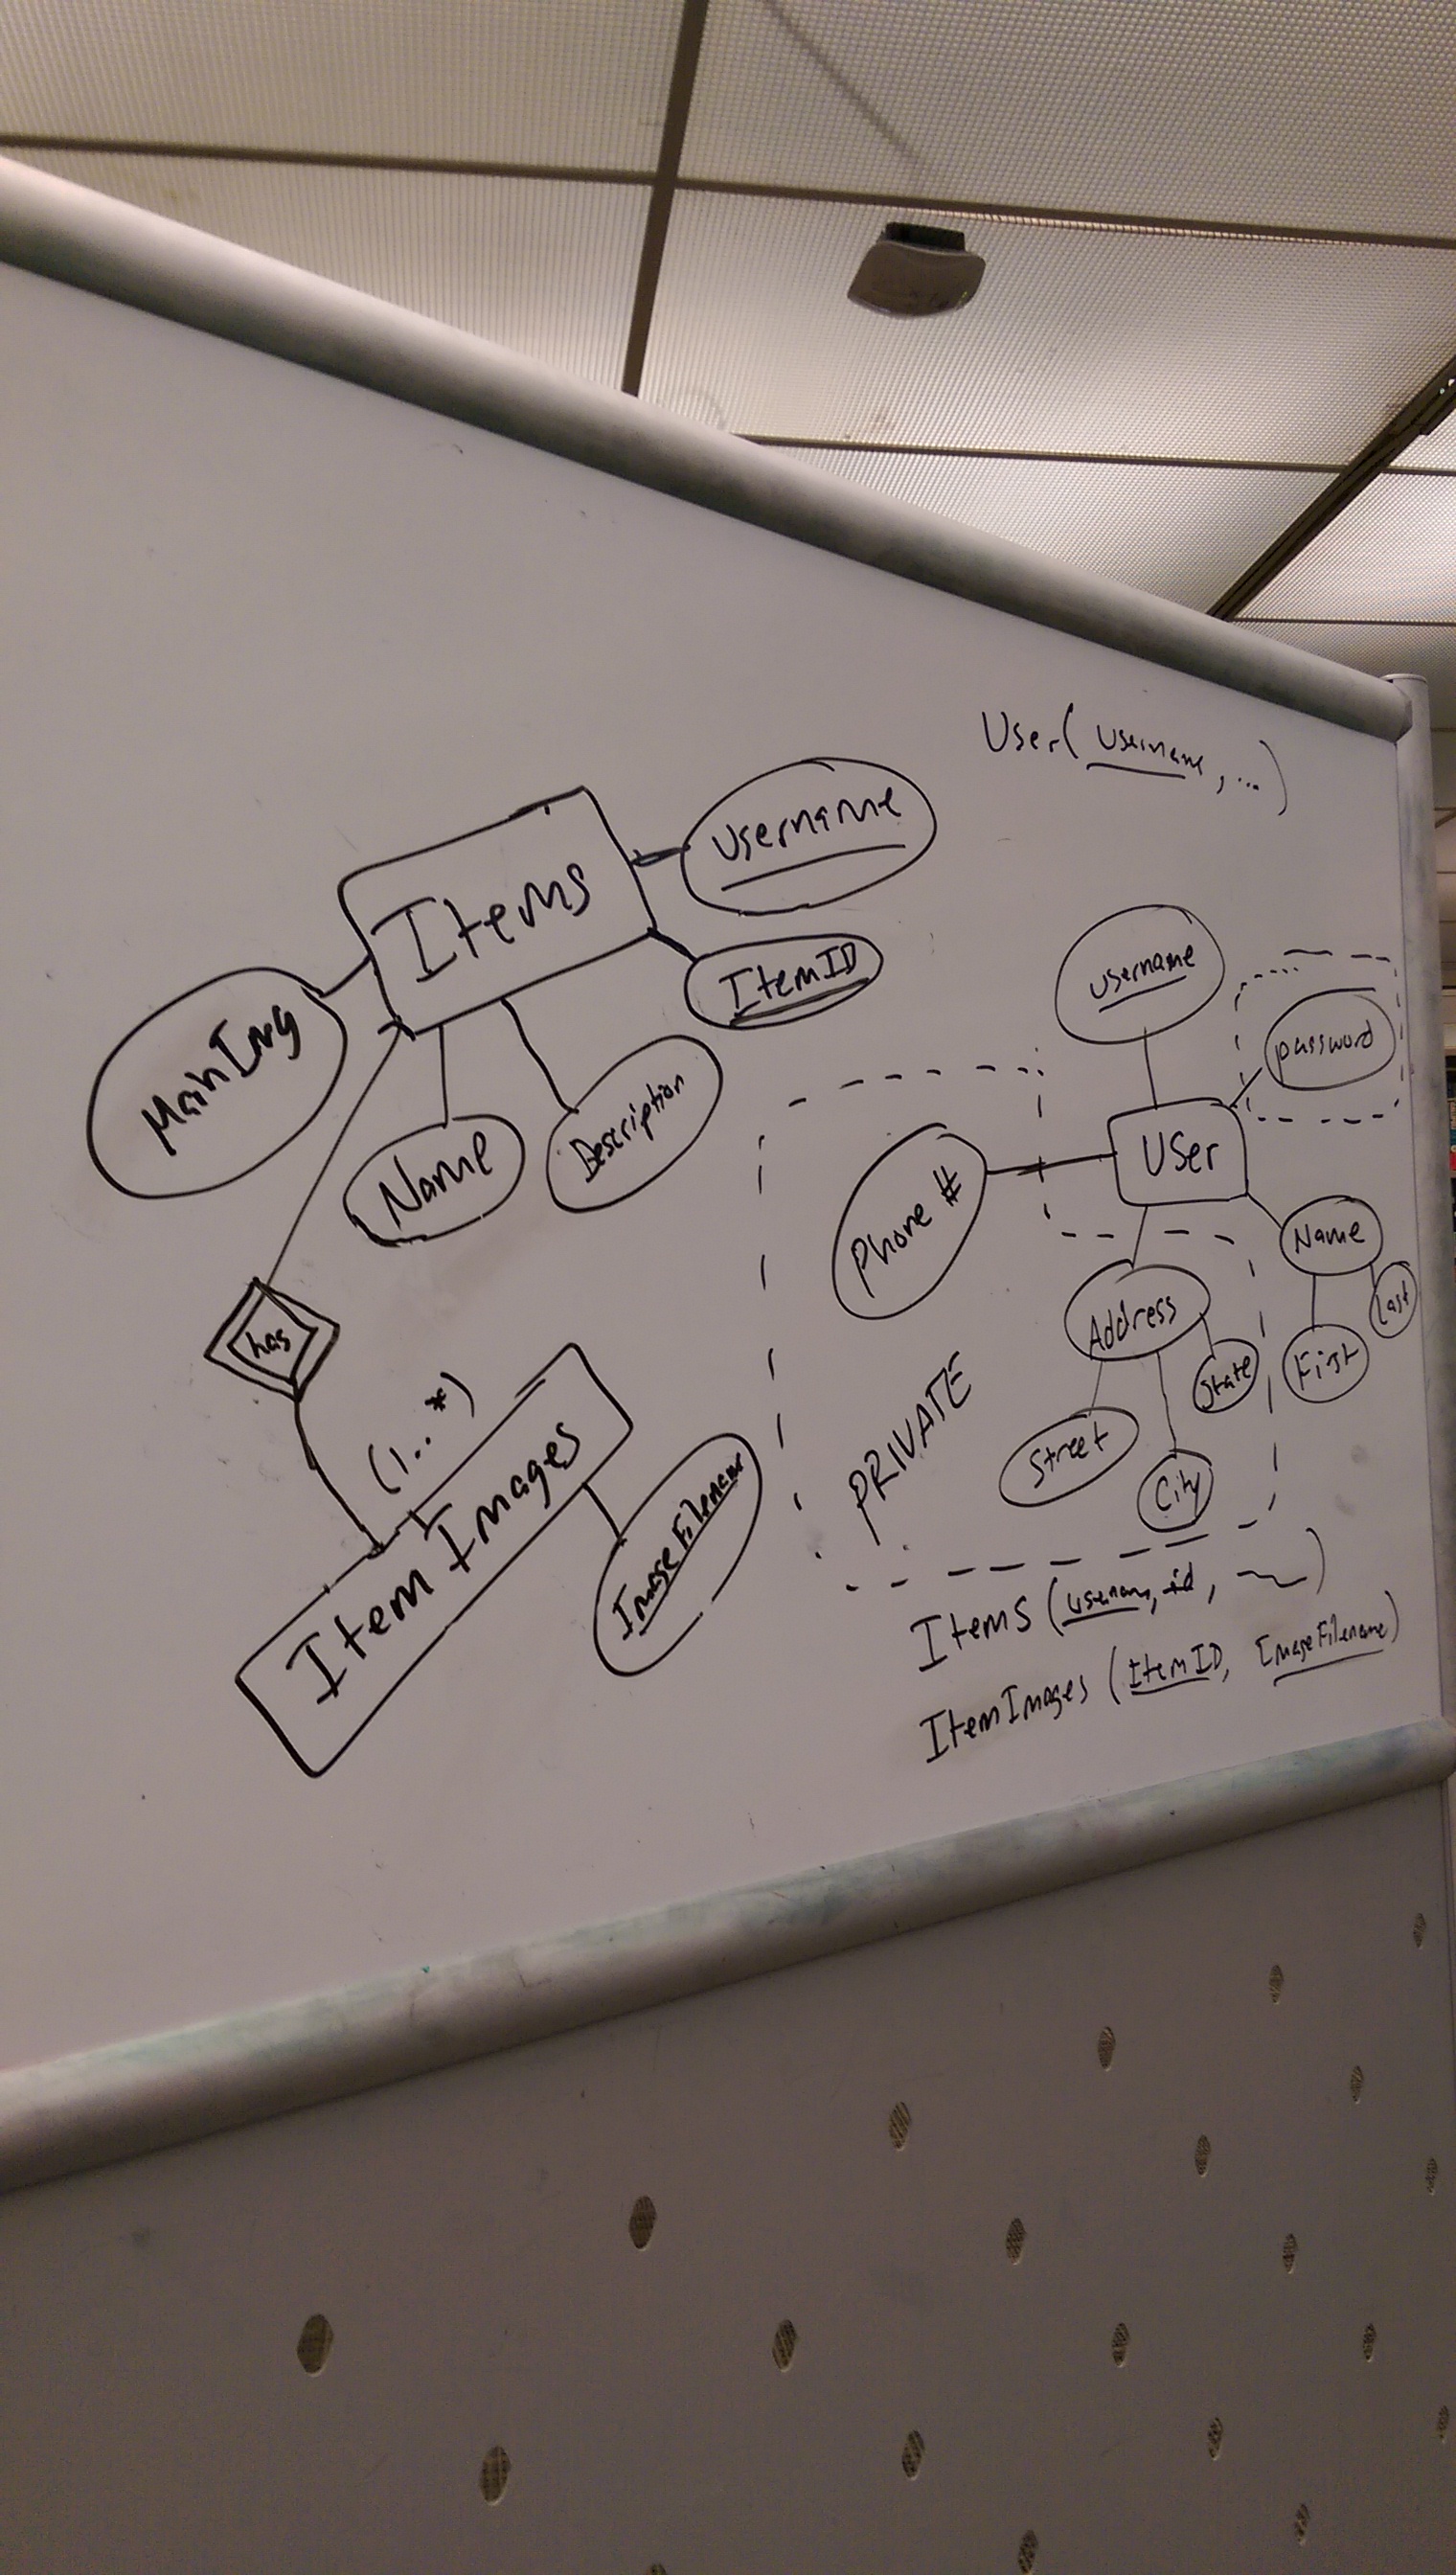 User( username, ...)
Items
username
ItemID
MainImg
Name
Description
has
(1..*)
Item Images
ImageFilename
username
password
User
Phone #
Name
First
Last
Address
Street
City
State
PRIVATE
Items (username, id, )
ItemImages (ItemID, ImageFilename)